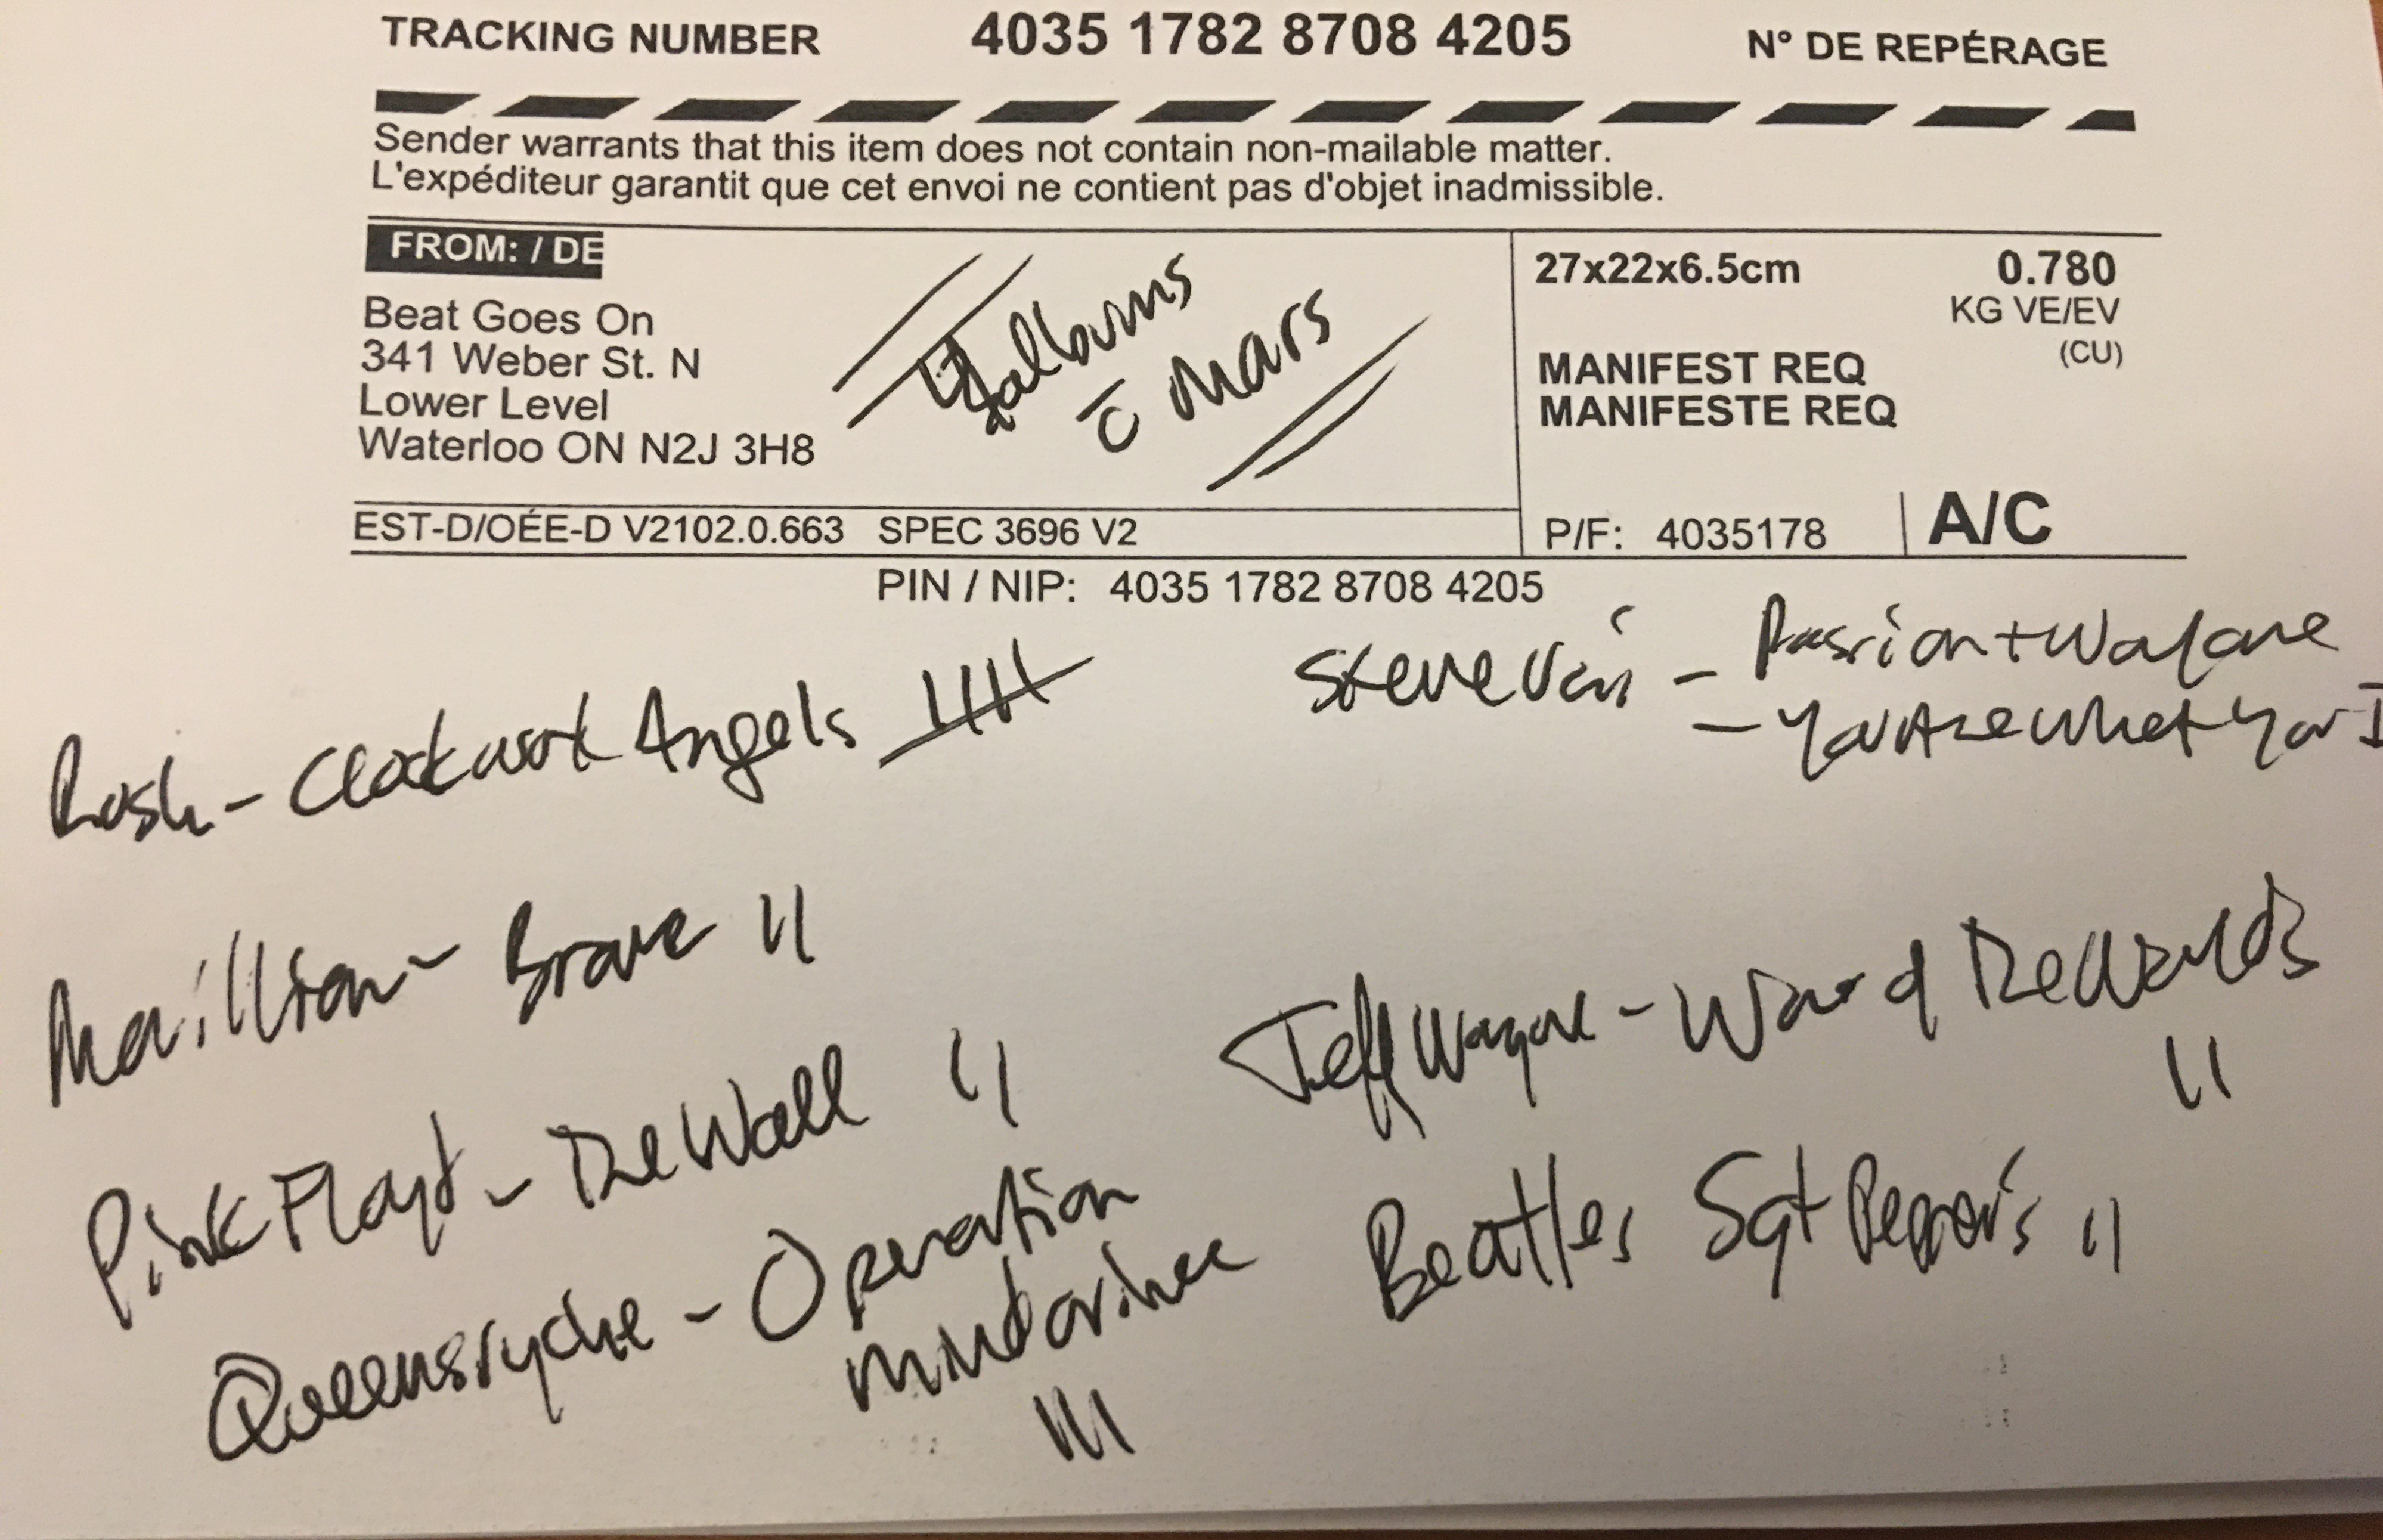 TRACKING NUMBER 4035 1782 8708 4205 N° DE REPÉRAGE
Sender warrants that this item does not contain non-mailable matter.
L'expéditeur garantit que cet envoi ne contient pas d'objet inadmissible.
FROM: / DE
Beat Goes On
341 Weber St. N
Lower Level
Waterloo ON N2J 3H8
albums
c̄ Mars
27x22x6.5cm 0.780
KG VE/EV
(CU)
MANIFEST REQ
MANIFESTE REQ
EST-D/OÉE-D V2102.0.663 SPEC 3696 V2
P/F: 4035178 A/C
PIN / NIP: 4035 1782 8708 4205
Rush - Clockwork Angels
Steve Vai - Passion + Warfare
- You Are What You I
Marillion - Brave II
Pink Floyd - The Wall II
Queensryche - Operation
Mindcrime
III
Jeff Wayne - War of The Worlds
II
Beatles Sgt Pepper's II